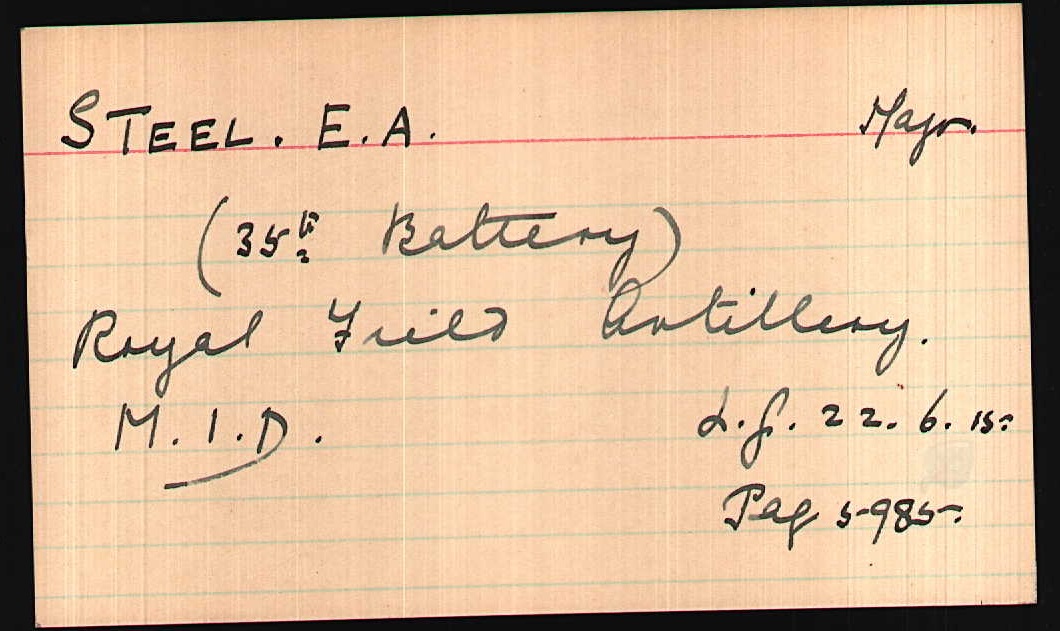 STEEL. E.A. Major.
(35th Battery)
Royal Field Artillery.
M.I.D. L.G. 22.6.15.
Page 5985.